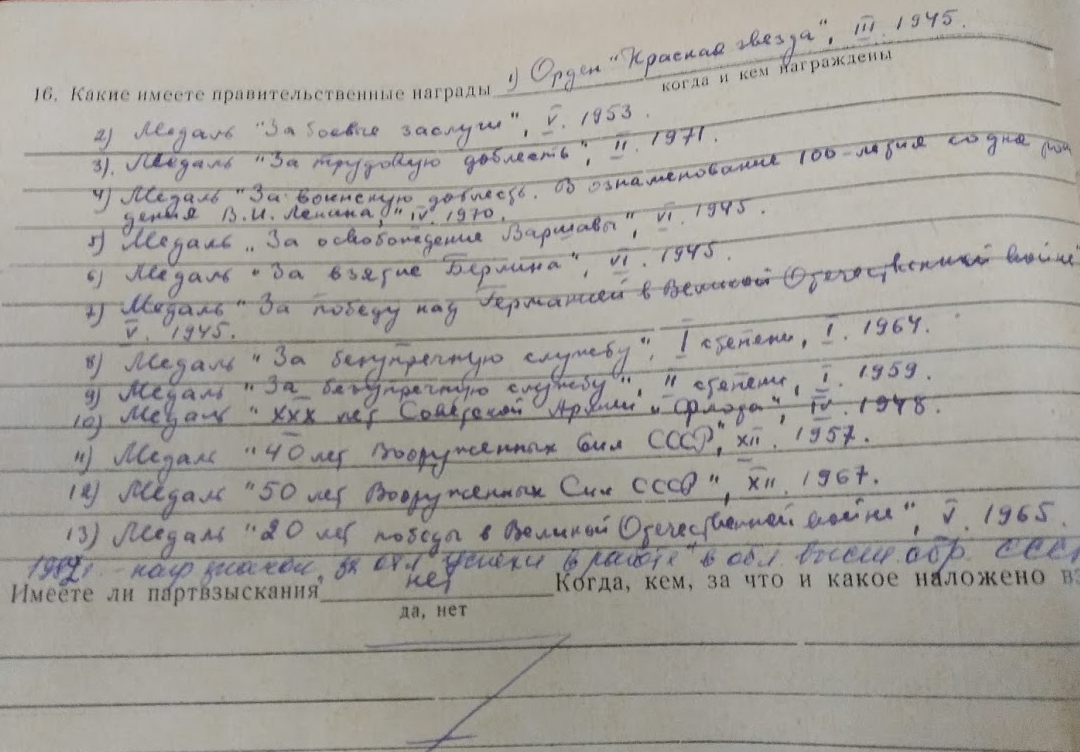 16. Какие имеете правительственные награды 1) Орден "Красная звезда", III. 1945.
когда и кем награждены
2) Медаль "За боевые заслуги", V. 1953.
3). Медаль "За трудовую доблесть", II. 1971.
4) Медаль "За воинскую доблесть. В ознаменование 100-летия со дня рож
дения В.И. Ленина," IV. 1970.
5) Медаль „За освобождение Варшавы", VI. 1945.
6) Медаль "За взятие Берлина", VI. 1945.
7) Медаль "За победу над Германией в Великой Отечественной войне
V. 1945.
8) Медаль "За безупречную службу", I степени, I. 1964.
9) Медаль "За безупречную службу", II степени, I. 1959.
10) Медаль "XXX лет Советской Армии и Флота", IV. 1948.
11) Медаль "40 лет Вооруженных Сил СССР", XII. 1957.
12) Медаль "50 лет Вооруженных Сил СССР", XII. 1967.
13) Медаль "20 лет победы в Великой Отечественной войне", V. 1965.
нагр знаком, за отл. успехи в работе" в обл. высш. обр. СССР
Имеете ли партвзыскания нет Когда, кем, за что и какое наложено вз
да, нет